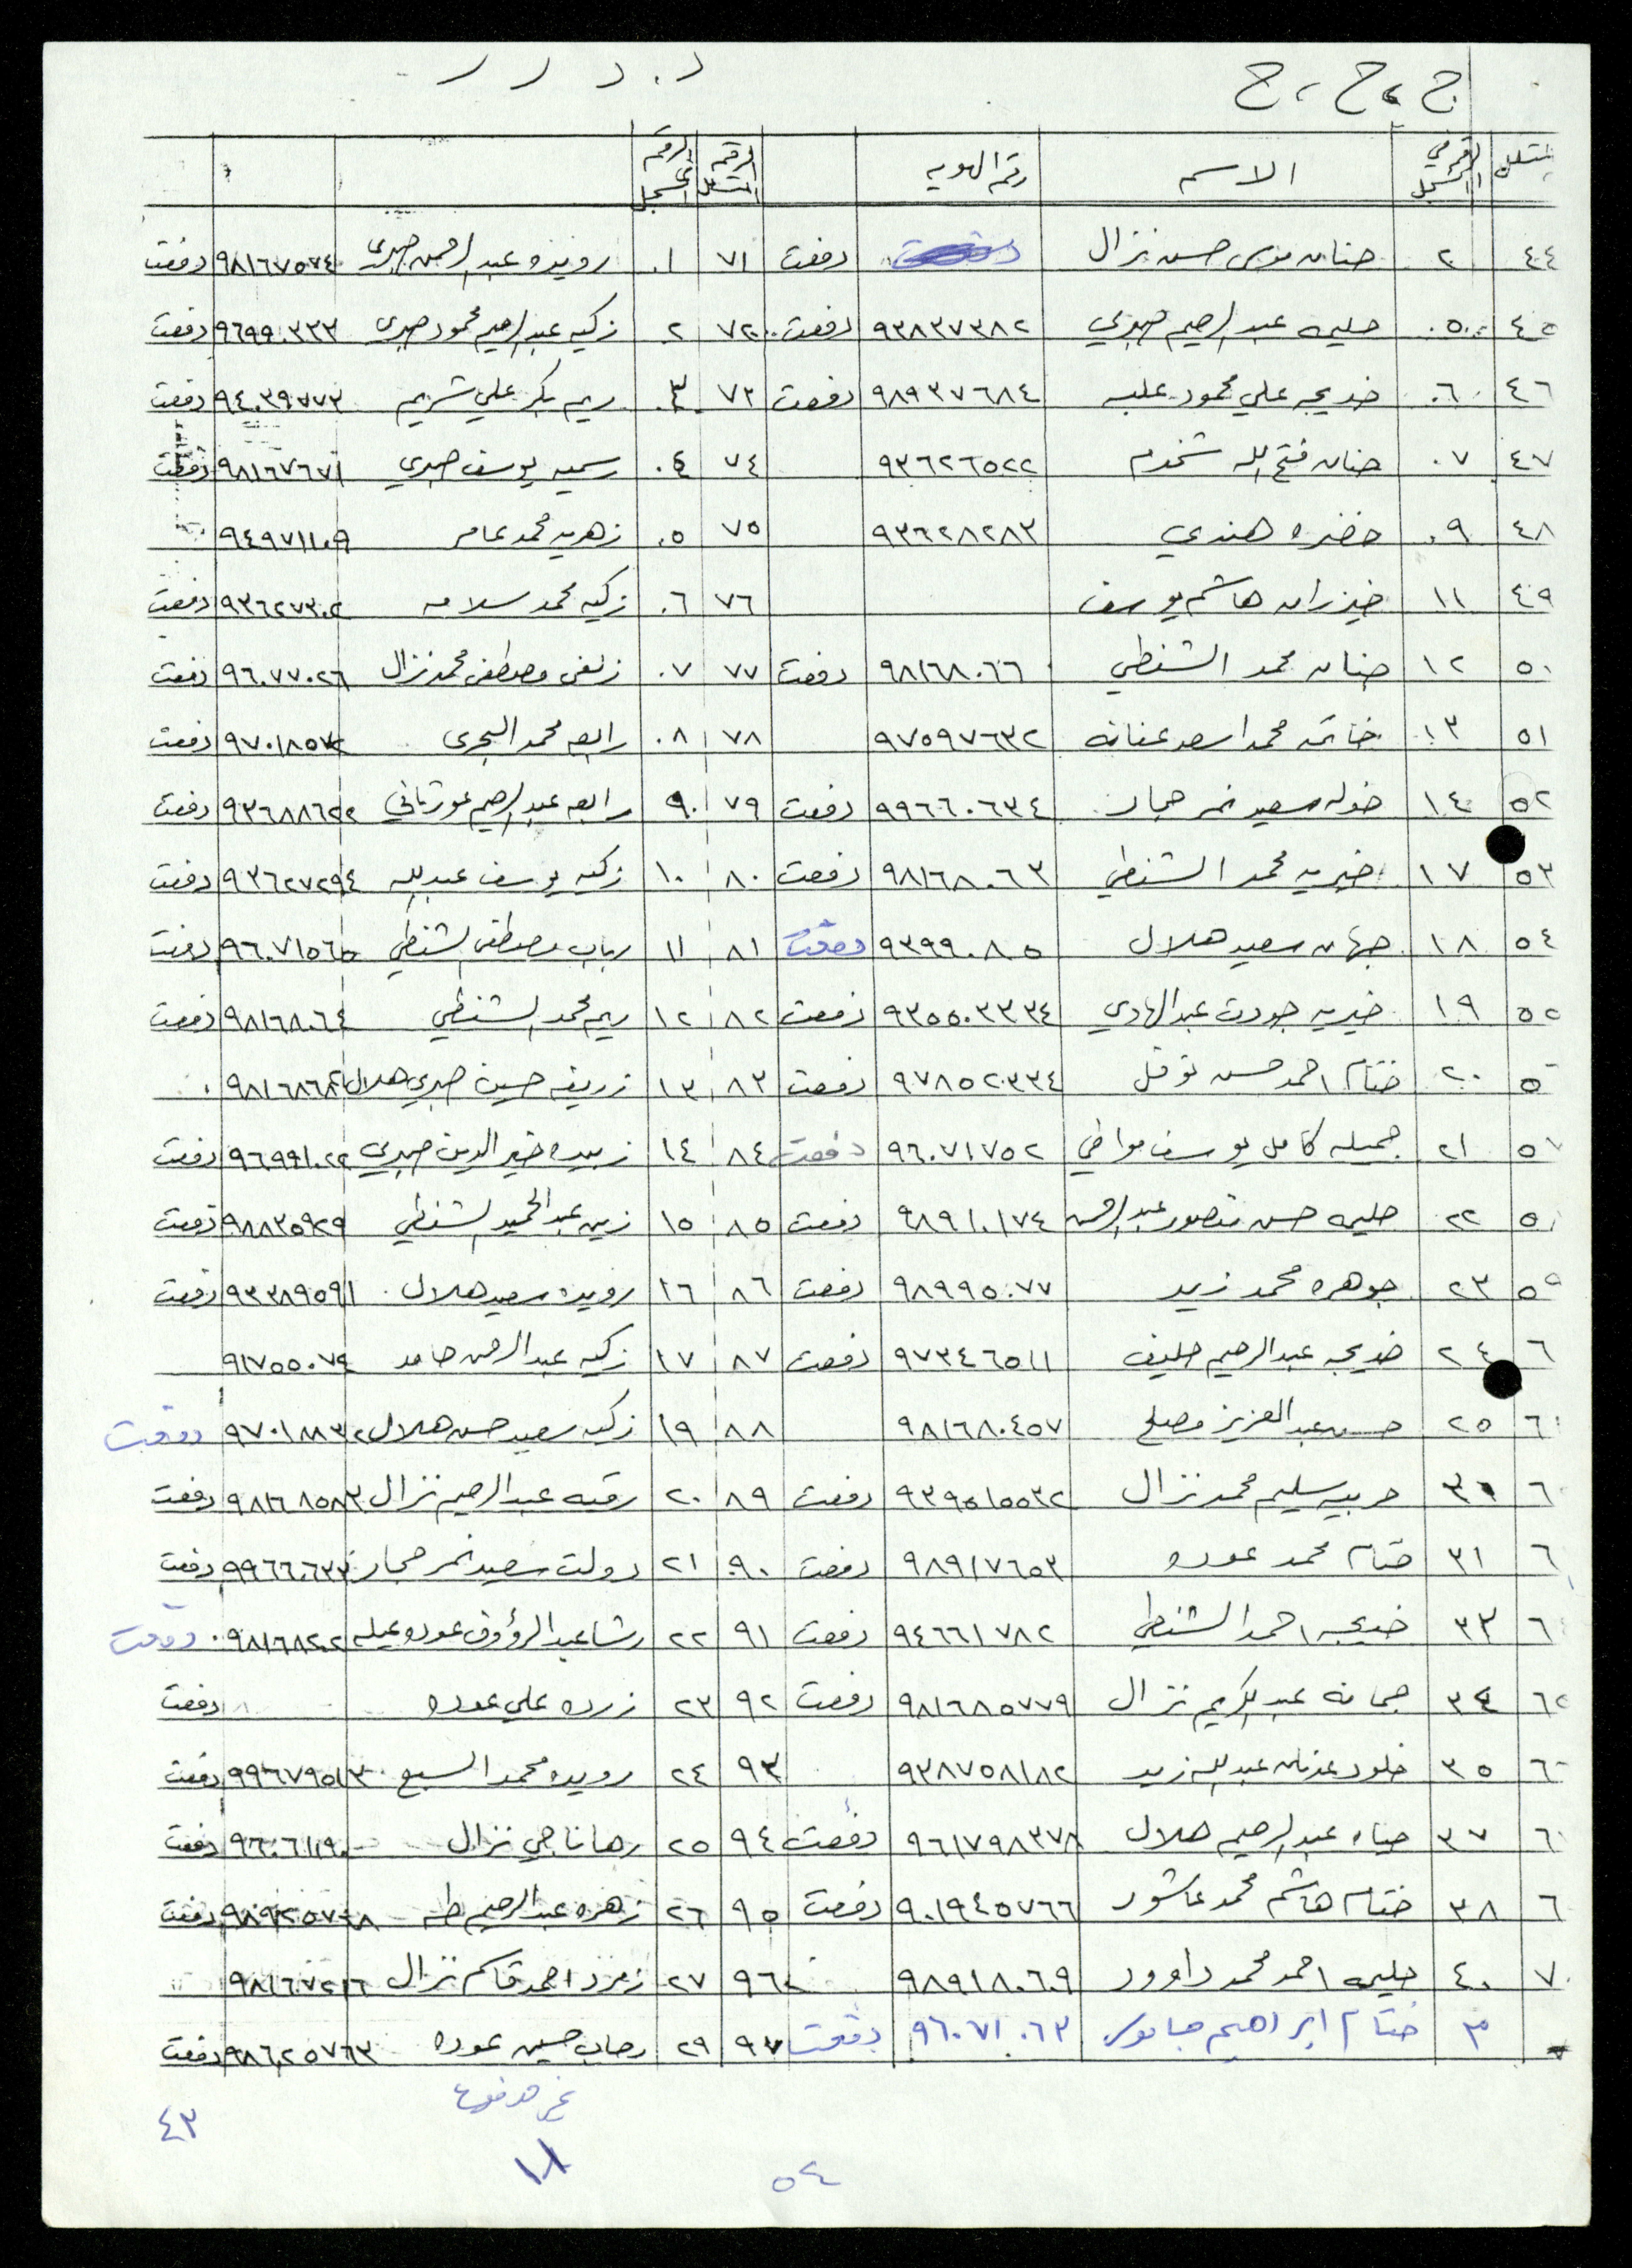 ج ، ح ، خ
د . ذ ر ز
متسلسل الرقم في السجل الاسم رقم الهويه الرقم المتسلسل الرقم في السجل
٤٤ ٢ حنان موسى حسن نزال دفعت ٧١ ١ رويده عبد الرحمن صبري ٩٨١٦٧٥٧٤ دفعت
٤٥ ٥ حليمه عبد الرحيم صبري ٩٣٨٣٧٣٨٢ دفعت ٧٢ ٢ زكيه عبد الرحيم محمود صبري ٩٦٩٩٠٣٣٣ دفعت
٤٦ ٦ خديجه علي محمود علبه ٩٨٩٣٧٦٨٤ دفعت ٧٣ ٣ ريم بكر علي شريم ٩٤٠٣٩٧٧٣ دفعت
٤٧ ٧ حنان فتح الله شخدم ٩٣٦٢٦٥٢٢ ٧٤ ٤ رسميه يوسف صبري ٩٨١٦٧٦٧١ دفعت
٤٨ ٩ خضره هندي ٩٣٦٢٨٢٨٣ ٧٥ ٥ زهريه محمد عامر ٩٤٩٧١١٠٩
٤٩ ١١ خيزران هاشم يوسف ٧٦ ٦ زكيه محمد سلامه ٩٣٦٢٧٣٠٢ دفعت
٥٠ ١٢ حنان محمد الشنطي ٩٨١٦٨٠٦٦ دفعت ٧٧ ٧ زلفى مصطفى محمد نزال ٩٦٠٧٧٠٢٦ دفعت
٥١ ١٣ خاتمه محمد اسعد عنايه ٩٧٥٩٧٦٣٢ ٧٨ ٨ رابعه محمد البحري ٩٧٠١٨٥٧٢ دفعت
٥٢ ١٤ خوله سعيد نمر حجاز ٩٩٦٦٠٦٣٤ دفعت ٧٩ ٩ رابعه عبد الرحيم عورتاني ٩٣٦٨٨٦٢٢ دفعت
٥٣ ١٧ خيريه محمد الشنطي ٩٨١٦٨٠٦٣ دفعت ٨٠ ١٠ زكيه يوسف عبدلله ٩٣٦٢٧٢٩٤ دفعت
٥٤ ١٨ جهان سعيد هلال ٩٣٩٩٠٨٥ دفعت ٨١ ١١ رباب مصطفى الشنطي ٩٦٠٧١٥٦٥ دفعت
٥٥ ١٩ خيريه جودت عبد الهادي ٩٣٥٥٠٣٣٣٤ دفعت ٨٢ ١٢ ريم محمد الشنطي ٩٨١٦٨٠٦٤ دفعت
٥ ٢٠ ختام احمد حسن نوفل ٩٧٨٥٢٣٣٤ دفعت ٨٣ ١٣ زريفه حسين صبري هلال ٩٨١٦٨٦٨٢
٥٧ ٢١ جميله كامل يوسف موافي ٩٦٠٧١٧٥٢ دفعت ٨٤ ١٤ زبيده خير الدين صبري ٩٦٩٩١٠٢٢ دفعت
٥ ٢٢ حليمه حسن منصور عبد الرحمن ٩٨٩١٠١٧٤ دفعت ٨٥ ١٥ زين عبد الحميد الشنطي ٩٨٨٣٥٩٢٩ دفعت
٥٩ ٢٣ جوهره محمد زيد ٩٨٩٩٥٠٧٧ دفعت ٨٦ ١٦ رويده سعيد هلال ٩٣٣٨٩٥٩١ دفعت
٦ ٢٤ خديجه عبد الرحيم خليف ٩٧٣٤٦٥١١ دفعت ٨٧ ١٧ زكيه عبد الرحمن حامد ٩١٧٥٥٠٧٩
٦١ ٢٥ عبد العزيز مصلح ٩٨١٦٨٠٤٥٧ ٨٨ ١٩ زكيه سعيد حسن هلال ٩٧٠١٨٨٣٢ دفعت
٦ ٣٠ حربيه سليم محمد نزال ٩٣٩٥١٥٥٣٢ دفعت ٨٩ ٢٠ رقيه عبد الرحيم نزال ٩٨١٦٨٥٨٣ دفعت
٦ ٣١ ختام محمد عوده ٩٨٩١٧٦٥٣ دفعت ٩٠ ٢١ دولت سعيد نمر حجاز ٩٩٦٦٠٦٣٣ دفعت
٦ ٣٣ خديجه احمد الشنطي ٩٤٦٦١٧٨٢ دفعت ٩١ ٢٢ رشا عبد الرؤوف عوده عيله ٩٨١٦٨٢٠٢ دفعت
٦٥ ٣٤ جمانه عبد الكريم نزال ٩٨١٦٨٥٧٧٩ دفعت ٩٢ ٢٣ زرده علي عوده دفعت
٦ ٣٥ خلود عدنان عبدلله زيد ٩٣٨٧٥٨١٨٢ ٩٣ ٢٤ رويده محمد السبع ٩٩٦٧٩٥١٣ دفعت
٦ ٣٧ حياه عبد الرحيم هلال ٩٦١٧٩٨٣٧٨ دفعت ٩٤ ٢٥ رها ناجي نزال ٩٦٠٦١١٩٠ دفعت
٦ ٣٨ ختام هاشم محمد عاشور ٩٠١٩٤٥٧٦٦ دفعت ٩٥ ٢٦ زهره عبد الرحيم طه ٩٨٩٢٥٧٤٨ دفعت
٧٠ ٤٠ حليمه احمد محمد داوود ٩٨٩١٨٠٦٠٩ ٩٦ ٢٧ زمرد احمد قاسم نزال ٩٨١٦٧٢١٦
٣ ختام ابراهيم جابر ٩٦٠٧١٠٦٣ دفعت ٩٧ ٢٩ رحاب حسين عوده ٩٨٦٢٥٧٦٣ دفعت
غير مدفوع
٤٣
١١
٥٤